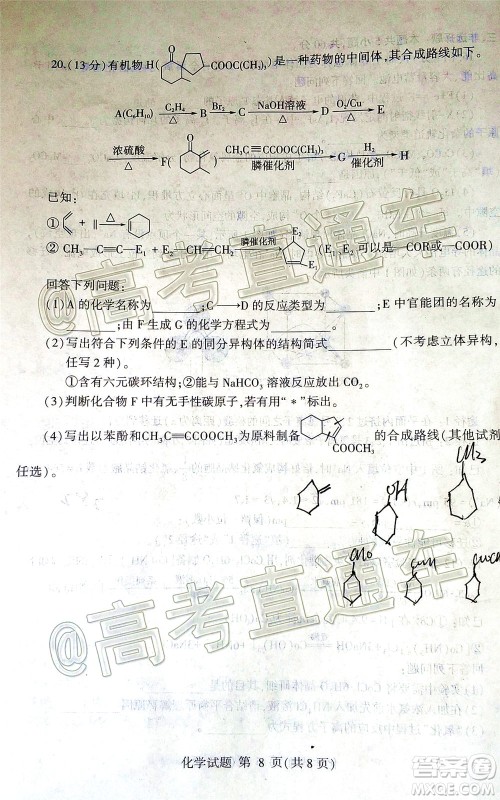 20.(13分)有机物H( O COOC(CH₃)₃)是一种药物的中间体,其合成路线如下。
A(C₆H₁₀) C₂H₄ △ B Br₂ C NaOH溶液 △ D O₂/Cu △ E
浓硫酸 △ F( O ) CH₃C≡CCOOC(CH₃)₃ 膦催化剂 G H₂ 催化剂 H
已知:
① + ‖ △
② CH₃—C≡C—E₁ + E₂—CH=CH₂ 膦催化剂 E₂ E₁ (E₁、E₂ 可以是—COR或—COOR)
回答下列问题:
(1)A的化学名称为______;C→D的反应类型为______;E中官能团的名称为
______;由F生成G的化学方程式为______。
(2)写出符合下列条件的E的同分异构体的结构简式______(不考虑立体异构,
任写2种)。
①含有六元碳环结构;②能与NaHCO₃溶液反应放出CO₂。
(3)判断化合物F中有无手性碳原子,若有用"*"标出。
(4)写出以苯酚和CH₃C≡CCOOCH₃为原料制备 COOCH₃ 的合成路线(其他试剂
任选)。
OH CH₃
CHO
化学试题 第 8 页(共8页)
@高考直通车
@高考直通车
答案圈